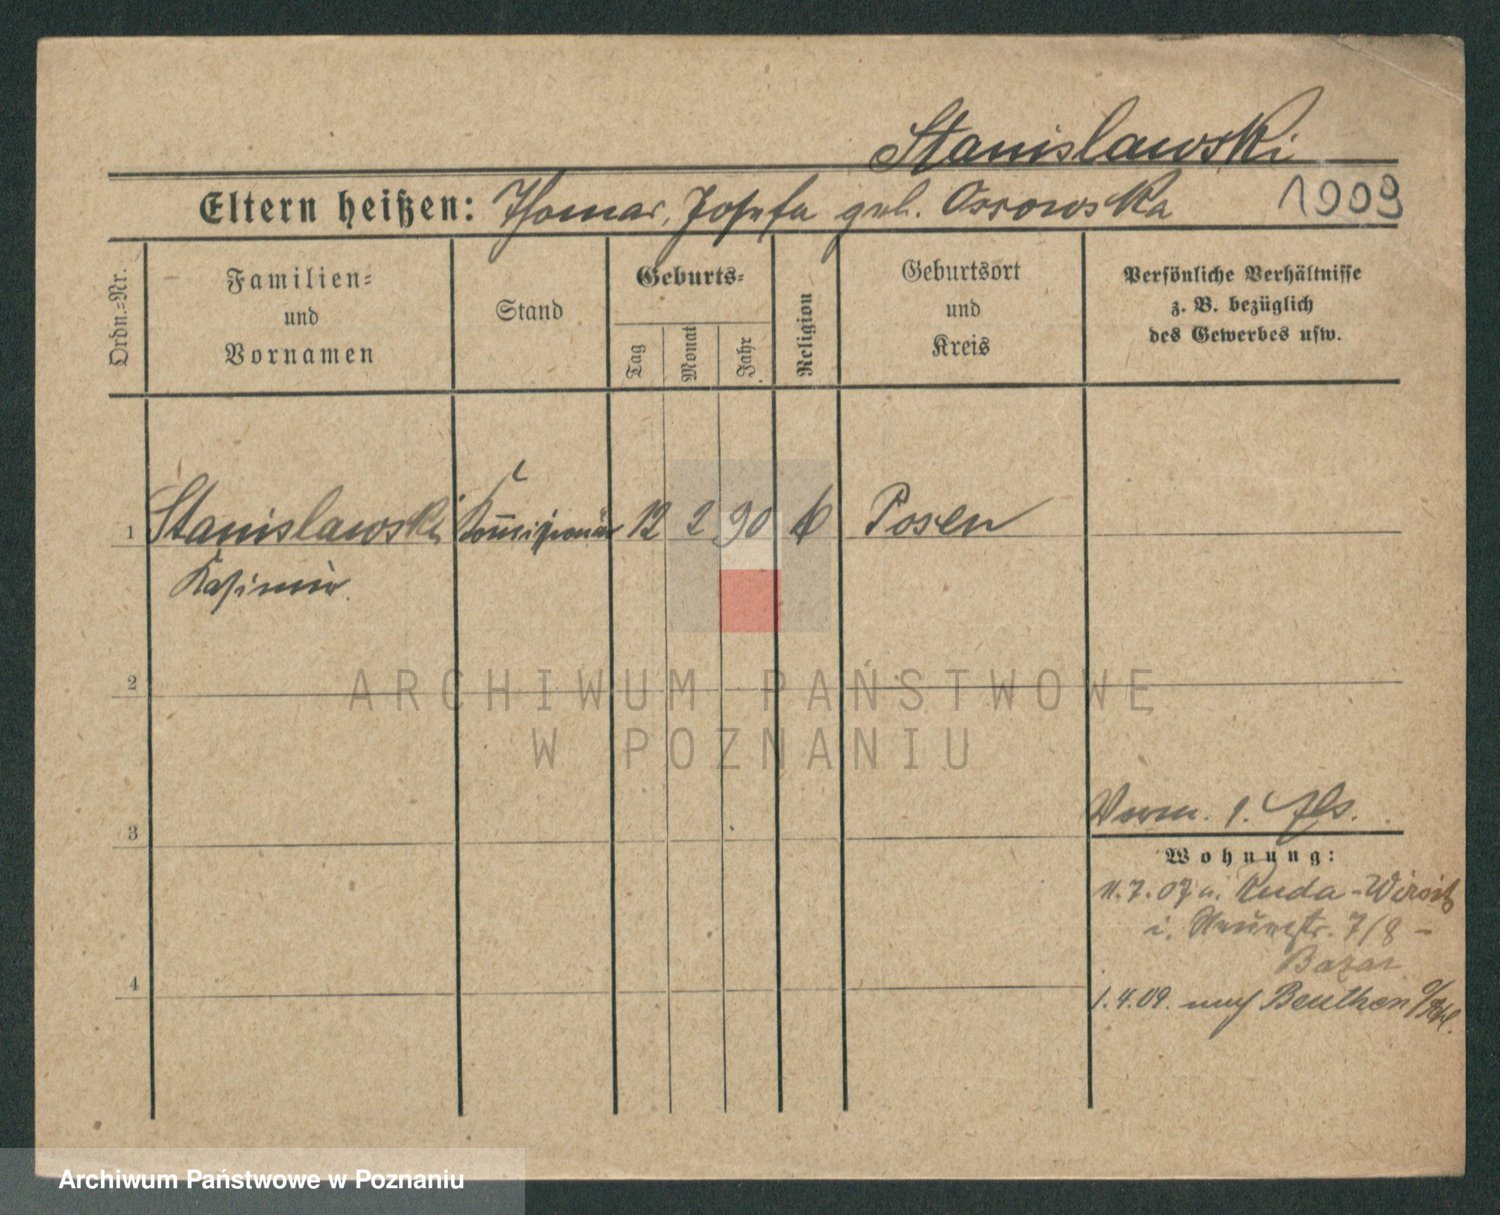 Stanislawski
Eltern heißen: Thomas, Josefa geb. Ossowska 1909
Ordn.-Nr.
Familien-
und
Vornamen
Stand
Geburts-
Tag
Monat
Jahr
Religion
Geburtsort
und
Kreis
Persönliche Verhältnisse
z. B. bezüglich
des Gewerbes usw.
1 Stanislawski 12 2 90 k Posen
Kasimir
2
ARCHIWUM PAŃSTWOWE
W POZNANIU
3
Wohnung:
11.7.07 Ruda - Wirsitz
i. Neuestr. 7/8 -
Bazar
4
1.4.09. nach Beuthen
Archiwum Państwowe w Poznaniu